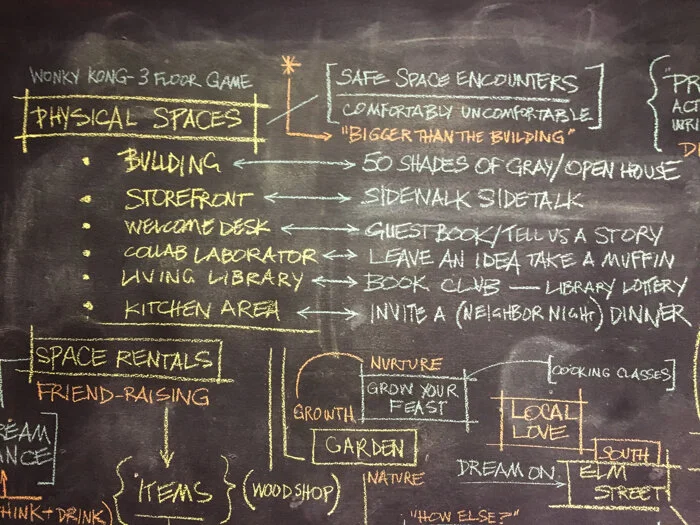 WONKY KONG-3 FLOOR GAME
PHYSICAL SPACES
*
SAFE SPACE ENCOUNTERS
COMFORTABLY UNCOMFORTABLE
"BIGGER THAN THE BUILDING"
• BUILDING ↔ 50 SHADES OF GRAY/OPEN HOUSE
• STOREFRONT ↔ SIDEWALK SIDETALK
• WELCOME DESK ↔ GUEST BOOK/TELL US A STORY
• COLLAB LABORATOR ↔ LEAVE AN IDEA TAKE A MUFFIN
• LIVING LIBRARY ↔ BOOK CLUB — LIBRARY LOTTERY
• KITCHEN AREA ↔ INVITE A (NEIGHBOR NIGHT) DINNER
SPACE RENTALS
FRIEND-RAISING
{ITEMS}
(WOODSHOP)
NURTURE
GROW YOUR
FEAST
GROWTH
GARDEN
NATURE
[COOKING CLASSES]
LOCAL
LOVE
DREAM ON
SOUTH
ELM
STREET
"HOW ELSE?"
THINK + DRINK)